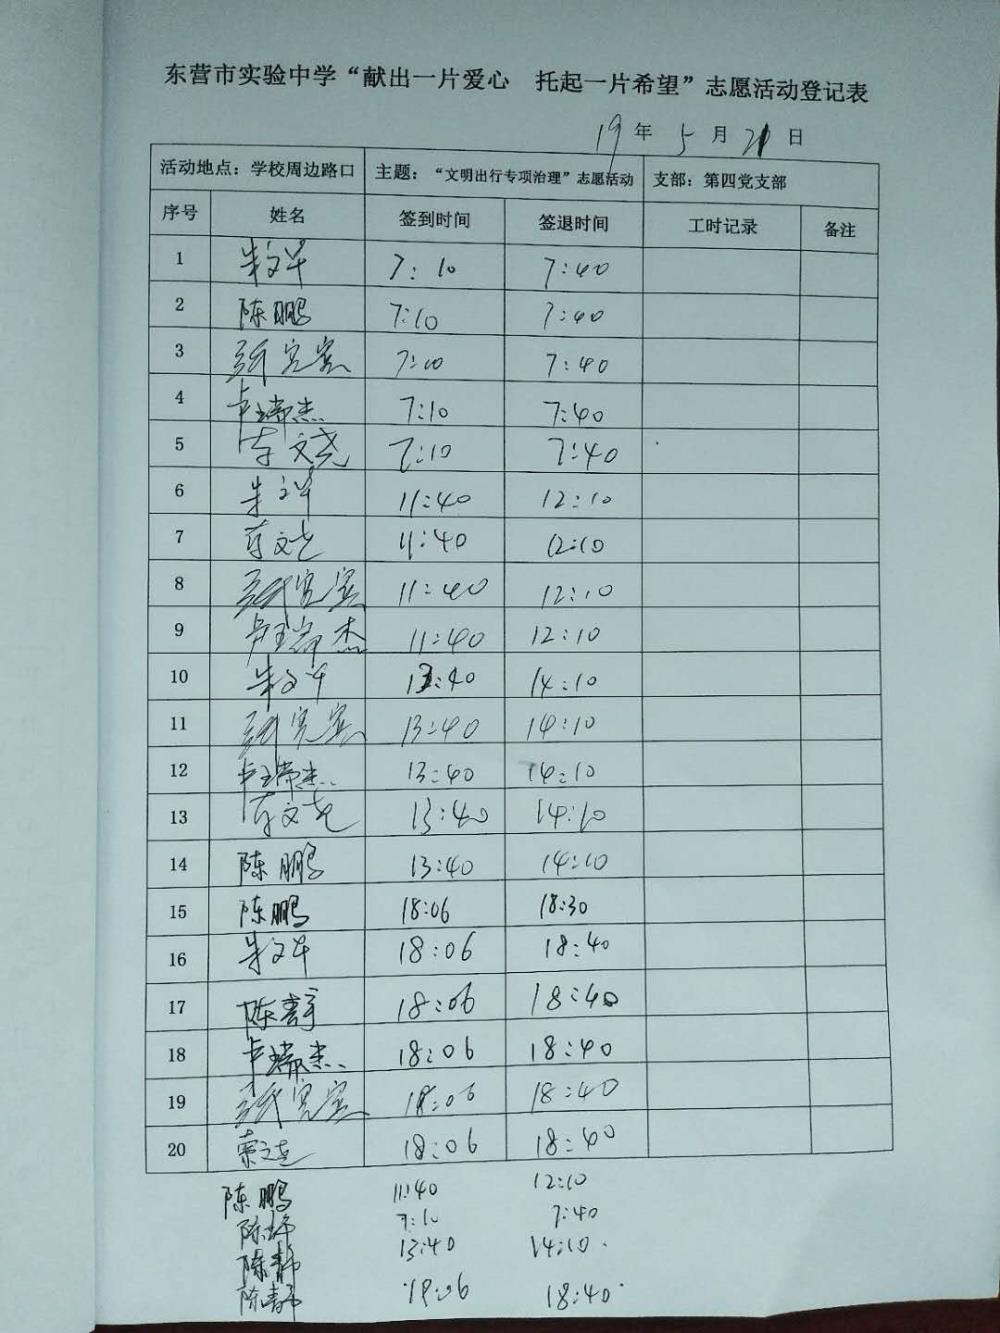 东营市实验中学“献出一片爱心 托起一片希望”志愿活动登记表
19年5月21日
活动地点：学校周边路口 主题：“文明出行专项治理”志愿活动 支部：第四党支部
序号 姓名 签到时间 签退时间 工时记录 备注
1 朱文华 7:10 7:40
2 陈鹏 7:10 7:40
3 7:10 7:40
4 卢瑞杰 7:10 7:40
5 文尧 7:10 7:40
6 朱文华 11:40 12:10
7 文尧 11:40 12:10
8 11:40 12:10
9 卢瑞杰 11:40 12:10
10 朱文华 13:40 14:10
11 13:40 14:10
12 卢瑞杰 13:40 14:10
13 文尧 13:40 14:10
14 陈鹏 13:40 14:10
15 陈鹏 18:06 18:30
16 朱文华 18:06 18:40
17 陈 18:06 18:40
18 卢瑞杰 18:06 18:40
19 18:06 18:40
20 18:06 18:40
陈鹏 11:40 12:10
陈 7:10 7:40
陈静 13:40 14:10
陈静 18:06 18:40